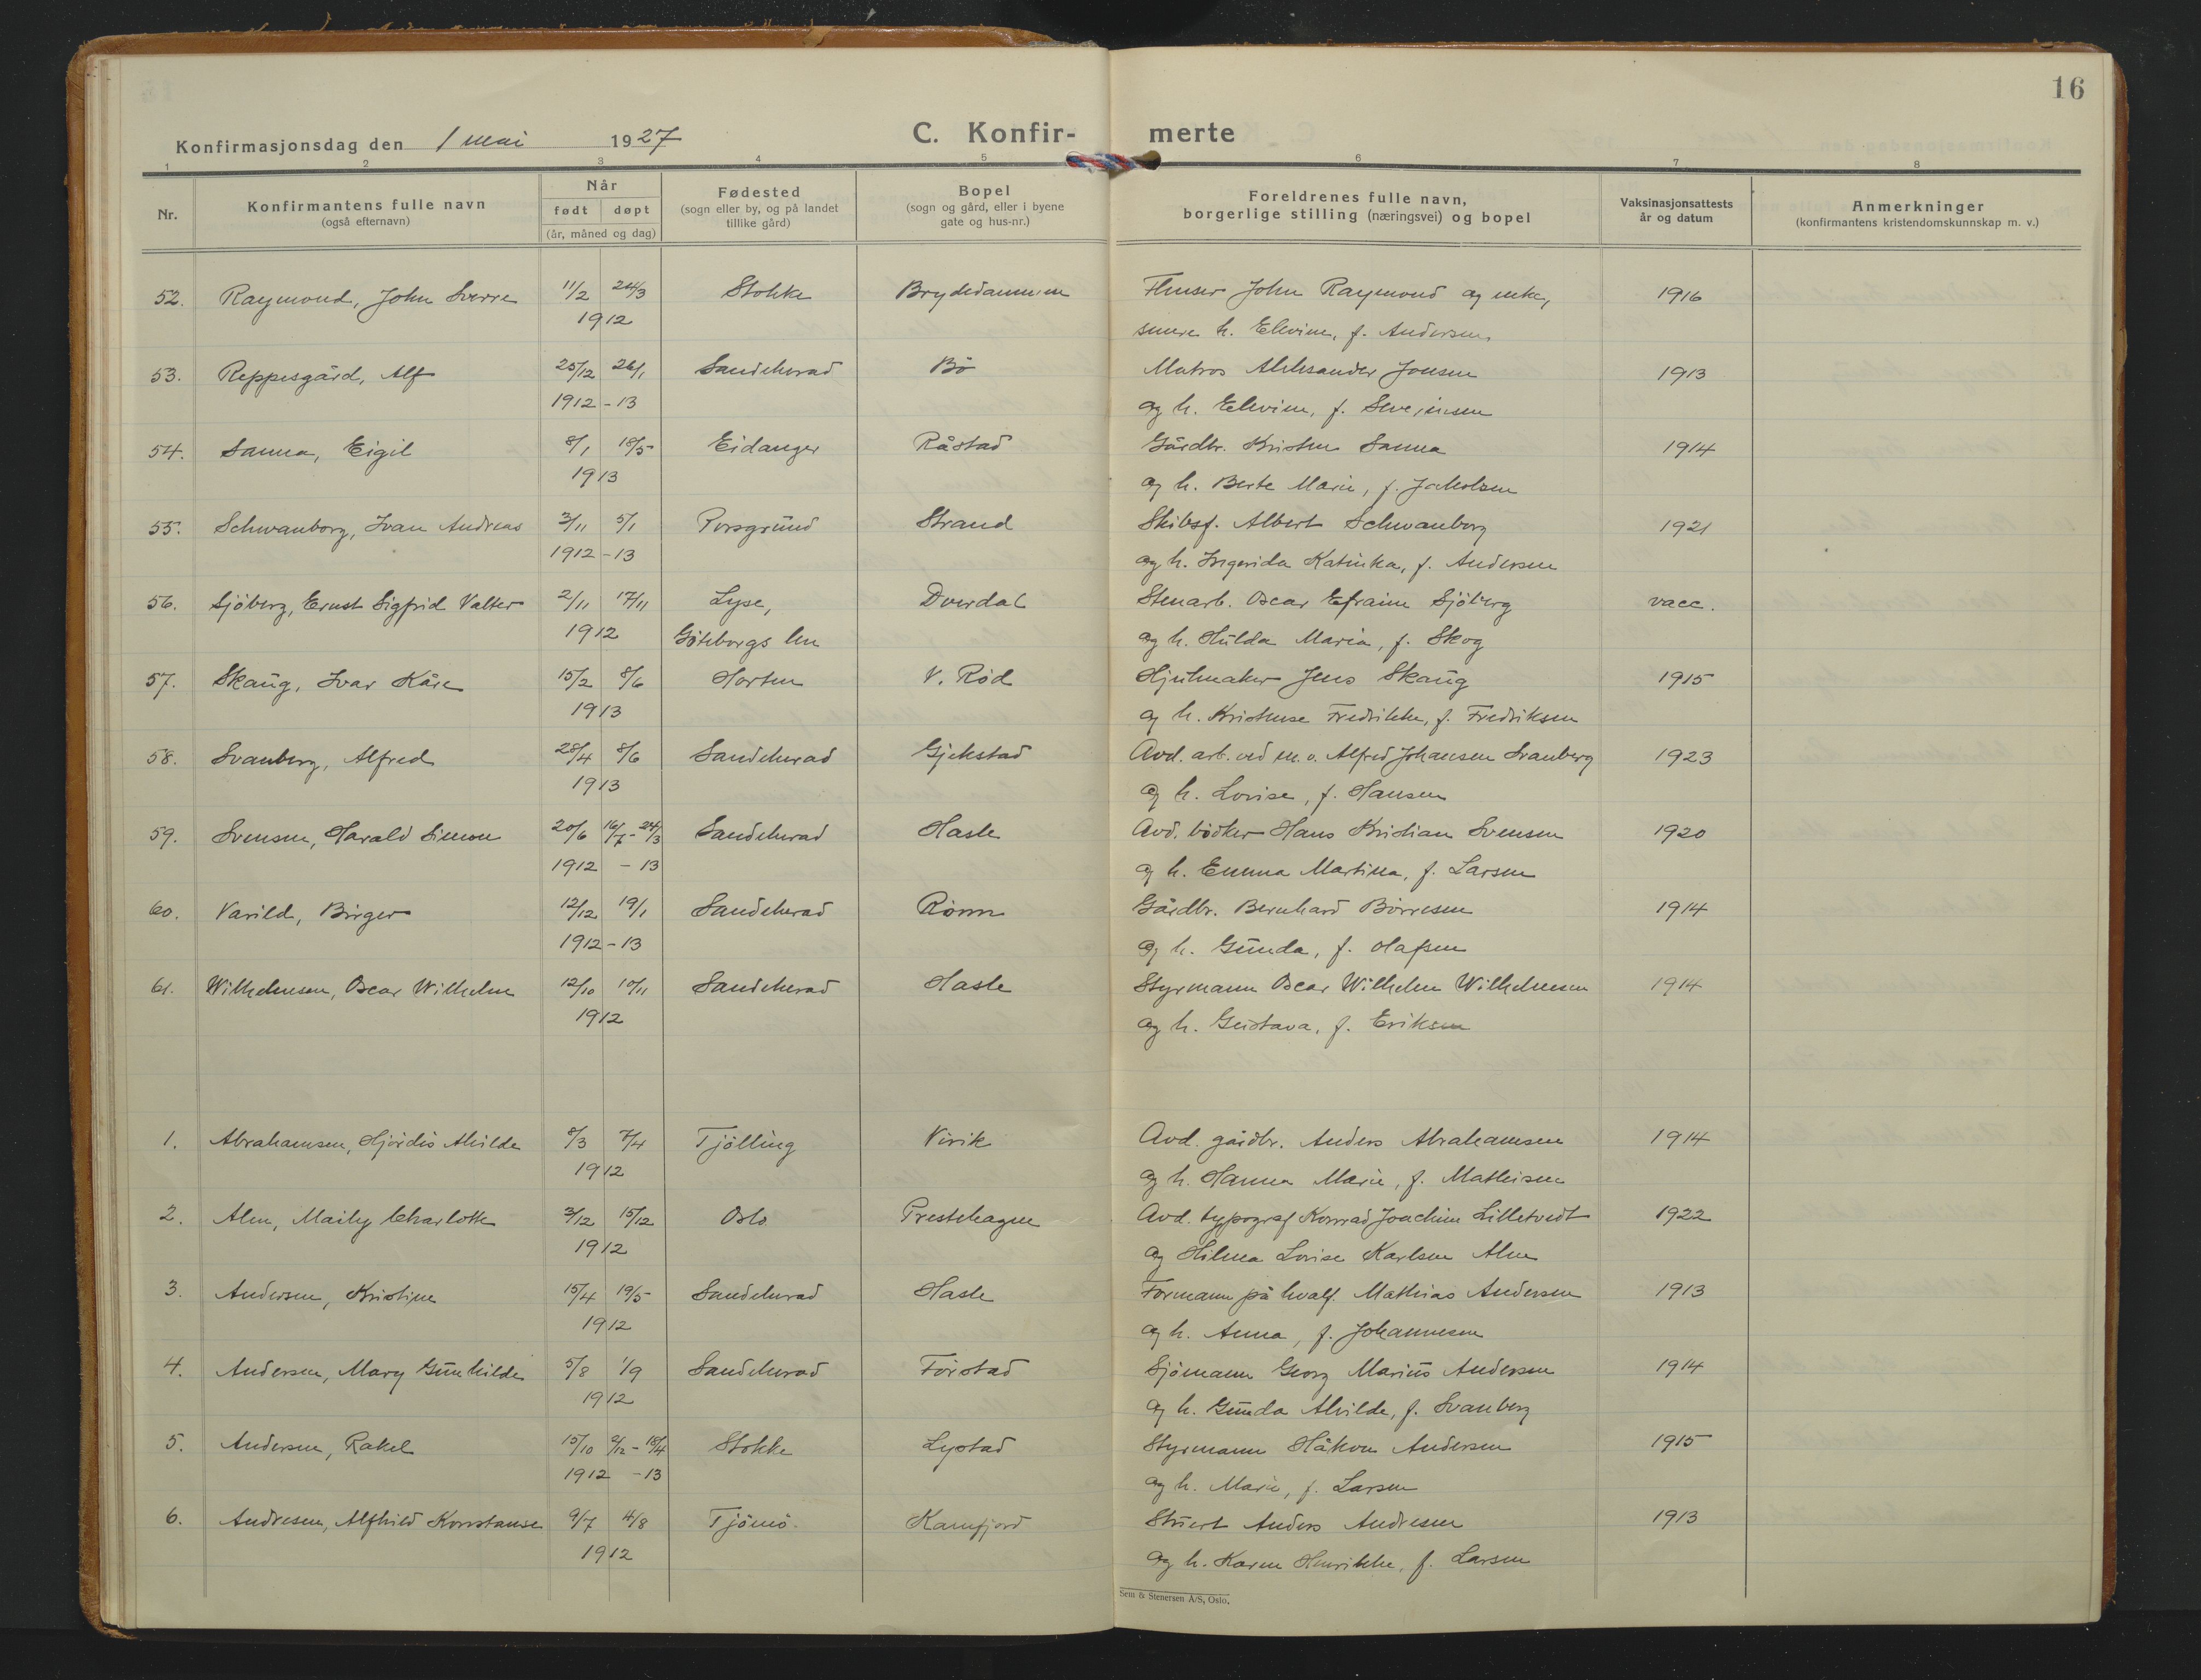 16
Konfirmasjonsdag den 1 mai 1927
C. Konfir- merte
1 2 3 4 5 6 7 8
Nr. Konfirmantens fulle navn (også efternavn) Når født døpt (år, måned og dag) Fødested (sogn eller by, og på landet tillike gård) Bopel (sogn og gård, eller i byene gate og hus-nr.) Foreldrenes fulle navn, borgerlige stilling (næringsvei) og bopel Vaksinasjonsattests år og datum Anmerkninger (konfirmantens kristendomskunnskap m. v.)
52. Raymond, John Sverre 11/2 24/3 Stokke Brydedammen Flenser John Raymond og enke, 1916
1912 senere h. Elevine, f. Andersen
53. Reppesgård, Alf 25/12 26/1 Sandeherad Bø Matros Aleksander Jonsen 1913
1912 - 13 og h. Elevine, f. Severinsen
54. Sanna, Eigil 8/1 18/5 Eidanger Råstad Gårdbr. Kristen Sanna 1914
1913 og h. Berte Marie, f. Jakobsen
55. Schwanborg, Ivan Andreas 3/11 5/1 Porsgrund Strand Skibsf. Albert Schwanborg 1921
1912 - 13 og h. Ingerida Katinka, f. Andersen
56. Sjöberg, Ernst Sigfrid Valter 2/11 17/11 Lyse, Dverdal Stenarb. Oscar Efraim Sjöberg vacc.
1912 Göteborgs len og h. Hulda Maria, f. Skog
57. Skaug, Ivar Kåre 15/2 8/6 Horten V. Rød Hjulmaker Jens Skaug 1915
1913 og h. Kristense Fredrikke, f. Fredriksen
58. Svanberg, Alfred 28/4 8/6 Sandeherad Gjekstad Avd. arb. ved m.v. Alfred Johansen Svanberg 1923
1913 og h. Lovise, f. Hansen
59. Svensen, Harald Simon 20/6 16/7 - 24/3 Sandeherad Hasle Avd. bødker Hans Kristian Svensen 1920
1912 - 13 og h. Emma Martina, f. Larsen
60. Varild, Birger 12/12 19/1 Sandeherad Rönn Gårdbr. Bernhard Børresen 1914
1912 - 13 og h. Gunda, f. Olafsen
61. Wilhelmsen, Oscar Wilhelm 12/10 10/11 Sandeherad Hasle Styrmann Oscar Wilhelm Wilhelmsen 1914
1912 og h. Gustava, f. Eriksen
1. Abrahamsen, Hjørdis Alvilde 8/3 7/4 Tjölling Virik Avd. gårdbr. Anders Abrahamsen 1914
1912 og h. Hanna Marie, f. Mathisen
2. Alm, Maily Charlotte 3/12 15/12 Oslo Prestehagen Avd. typograf Konrad Joachim Lilletvedt 1922
1912 og Hilma Lovise Karlsen Alm
3. Andersen, Kristine 15/4 19/5 Sandeherad Hasle Formann på hvalf. Mathias Andersen 1913
1912 og h. Anna, f. Johannesen
4. Andersen, Mary Gunhilde 5/8 1/9 Sandeherad Førstad Sjömann Georg Marius Andersen 1914
1912 og h. Gunda Alvilde, f. Svanberg
5. Andersen, Rakel 15/10 8/12 - 18/4 Stokke Lystad Styrmann Håkon Andersen 1915
1912 - 13 og h. Marie, f. Larsen
6. Andresen, Alfhild Konstanse 9/7 4/8 Tjömö Kamfjord Stuert Anders Andresen 1913
1912 og h. Karen Henrikke, f. Larsen
Sem & Stenersen A/S, Oslo.